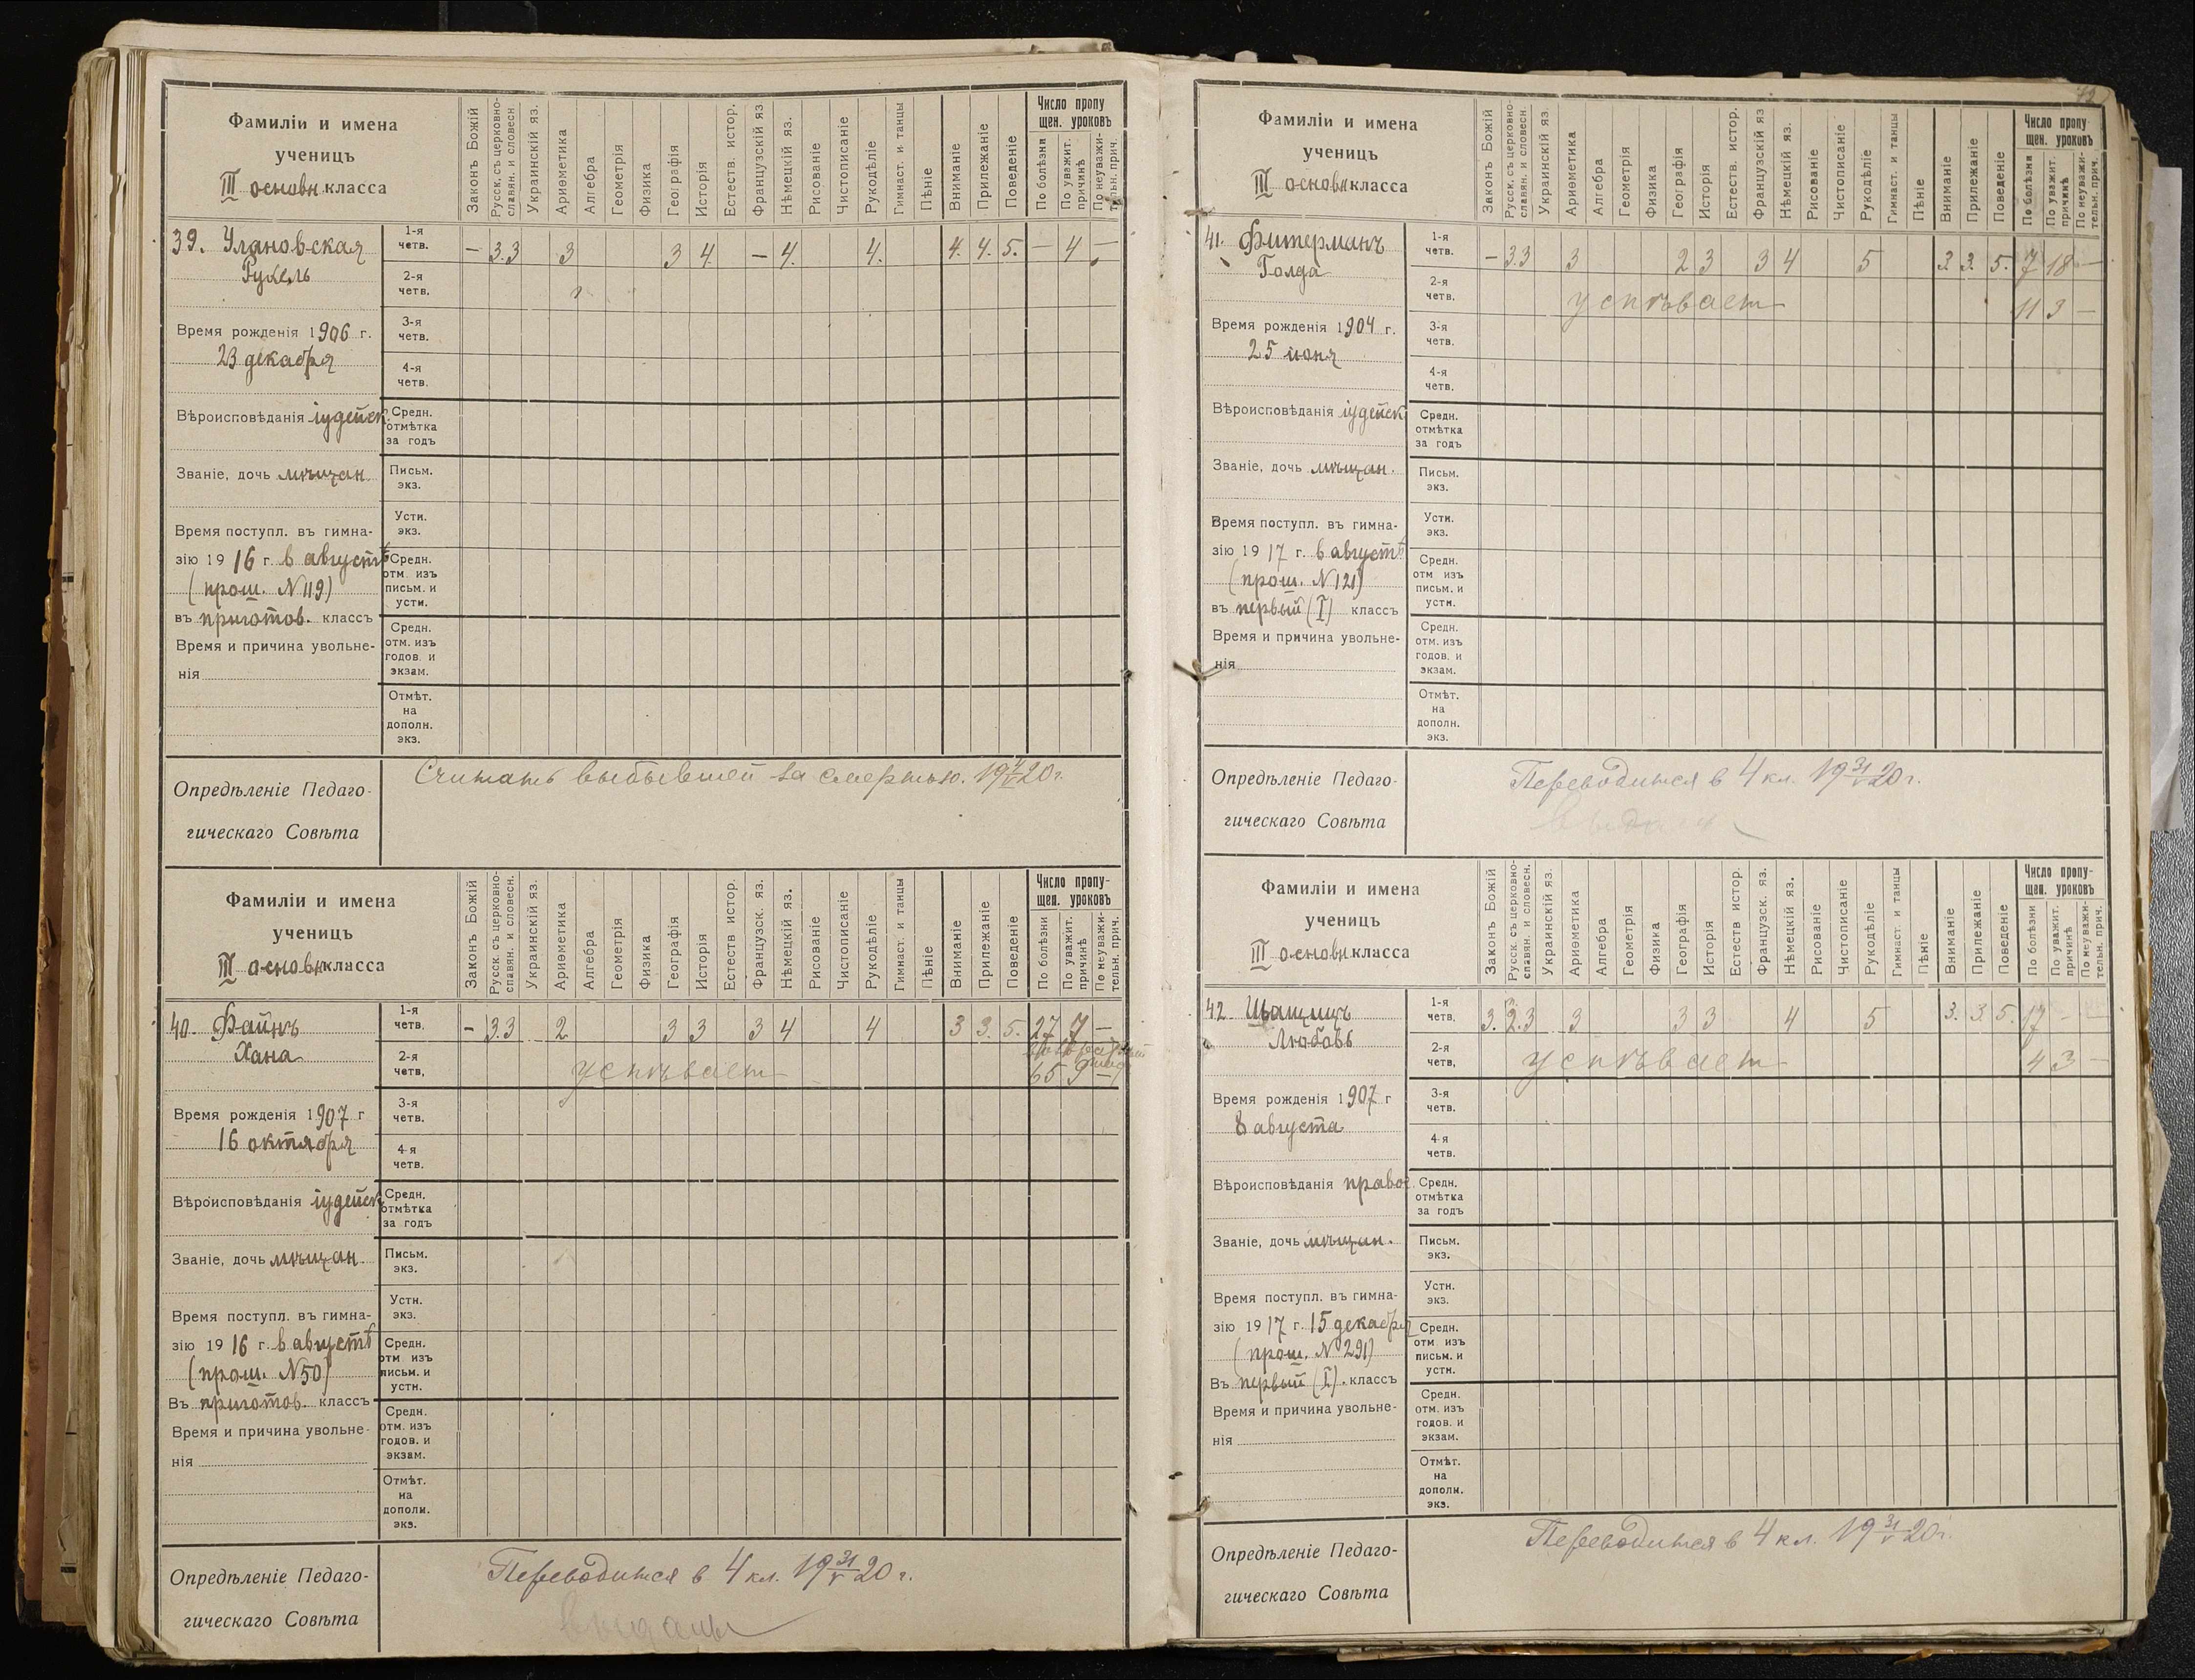 Фамиліи и имена
ученицъ
III основн. класса
Законъ Божій
Русск. съ церковно-
славян. и словесн
Украинскій яз.
Ариѳметика
Алгебра
Геометрія
Физика
Географія
Исторія
Естеств. истор.
Французскій яз
Нѣмецкій яз.
Рисованіе
Чистописаніе
Рукодѣліе
Гимнаст. и танцы
Пѣніе
Вниманіе
Прилежаніе
Поведеніе
Число пропу
щен. уроковъ
По болѣзни
По уважит.
причинѣ
По неуважи-
тельн. прич.
39. Улановская
Рухель
1-я
четв.
— 3.3 3 3 4 — 4. 4. 4. 4. 5. — 4 —
2-я
четв.
Время рожденія 1906 г.
23 декабря
3-я
четв.
4-я
четв.
Вѣроисповѣданія іудейск.
Средн.
отмѣтка
за годъ
Званіе, дочь мѣщан.
Письм.
экз.
Усти.
экз.
Время поступл. въ гимна-
зію 1916 г. в августѣ
(прош. N 119)
въ приготов. классъ
Средн.
отм. изъ
письм. и
усти.
Время и причина увольне-
нія
Средн.
отм. изъ
годов. и
экзам.
Отмѣт.
на
дополн.
экз.
Опредѣленіе Педаго-
гическаго Совѣта
Считать выбывшей за смертью.
Фамиліи и имена
ученицъ
III основн класса
Законъ Божій
Русск. съ церковно-
славян. и словесн.
Украинскій яз.
Ариѳметика
Алгебра
Геометрія
Физика
Географія
Исторія
Естеств истор.
Французск. яз.
Нѣмецкій яз.
Рисованіе
Чистописаніе
Рукодѣліе
Гимнаст. и танцы
Пѣніе
Вниманіе
Прилежаніе
Поведеніе
Число пропу-
щен. уроковъ
По болѣзни
По уважит.
причинѣ
По неуважи-
тельн. прич.
40. Файнъ
Хана
1-я
четв.
— 3.3 2 3 3 3 4 4 3 3. 5. 27 7 —
2-я
четв.
успѣвает
65 9 —
Время рожденія 1907 г
16 октября
3-я
четв.
4-я
четв.
Вѣроисповѣданія іудейск
Средн.
отмѣтка
за годъ
Званіе, дочь мѣщан.
Письм.
экз.
Устн.
экз.
Время поступл. въ гимна-
зію 1916 г. в августѣ
(прош. N 50)
Въ приготов. классъ
Средн.
отм изъ
письм. и
устн.
Время и причина увольне-
нія
Средн.
отм. изъ
годов. и
экзам.
Отмѣт.
на
дополн.
экз.
Опредѣленіе Педаго-
гическаго Совѣта
Переводится в 4 кл. 19 31/V 20 г.
выданы
Фамиліи и имена
ученицъ
III основн класса
Законъ Божій
Русск. съ церковно-
славян. и словесн.
Украинскій яз.
Ариѳметика
Алгебра
Геометрія
Физика
Географія
Исторія
Естеств. истор.
Французскій яз
Нѣмецкій яз.
Рисованіе
Чистописаніе
Рукодѣліе
Гимнаст. и танцы
Пѣніе
Вниманіе
Прилежаніе
Поведеніе
Число пропу
щен. уроковъ
По болѣзни
По уважит.
причинѣ
По неуважи-
тельн. прич.
41. Фитерманъ
Голда
1-я
четв.
— 3.3 3 2 3 3 4 5 3. 3. 5. 7 18 —
2-я
четв.
успѣвает
11 3 —
Время рожденія 1904 г.
25 июня
3-я
четв.
4-я
четв.
Вѣроисповѣданія іудейск
Средн.
отмѣтка
за годъ
Званіе, дочь мѣщан.
Письм.
экз.
Усти.
экз.
Время поступл. въ гимна-
зію 1917 г. в августѣ
(прош. N 121)
въ первый (I) классъ
Средн.
отм изъ
письм. и
устн.
Время и причина увольне-
нія
Средн.
отм. изъ
годов. и
экзам.
Отмѣт.
на
дополн.
экз.
Опредѣленіе Педаго-
гическаго Совѣта
Переводится в 4 кл. 19 31/V 20 г.
Фамиліи и имена
ученицъ
III основн класса
Законъ Божій
Русск. съ церковно-
славян. и словесн.
Украинскій яз.
Ариѳметика
Алгебра
Геометрія
Физика
Географія
Исторія
Естеств истор.
Французск. яз.
Нѣмецкій яз.
Рисованіе
Чистописаніе
Рукодѣліе
Гимнаст. и танцы
Пѣніе
Вниманіе
Прилежаніе
Поведеніе
Число пропу-
щен. уроковъ
По болѣзни
По уважит.
причинѣ
По неуважи-
тельн. прич.
42
Любовь
1-я
четв.
3. 2.3 3 3 3 4 5 3. 3. 5. 17 —
2-я
четв,
успѣвает
4 3 —
Время рожденія 1907 г
8 августа
3-я
четв.
4-я
четв.
Вѣроисповѣданія правос.
Средн.
отмѣтка
за годъ
Званіе, дочь мѣщан.
Письм.
экз.
Устн.
экз.
Время поступл. въ гимна-
зію 1917 г. 15 декабря
(прош. N 291)
Въ первый (I). классъ
Средн.
отм изъ
письм. и
устн.
Время и причина увольне-
нія
Средн.
отм. изъ
годов. и
экзам.
Отмѣт.
на
дополн.
экз.
Опредѣленіе Педаго-
гическаго Совѣта
Переводится в 4 кл. 19 31/V 20 г.